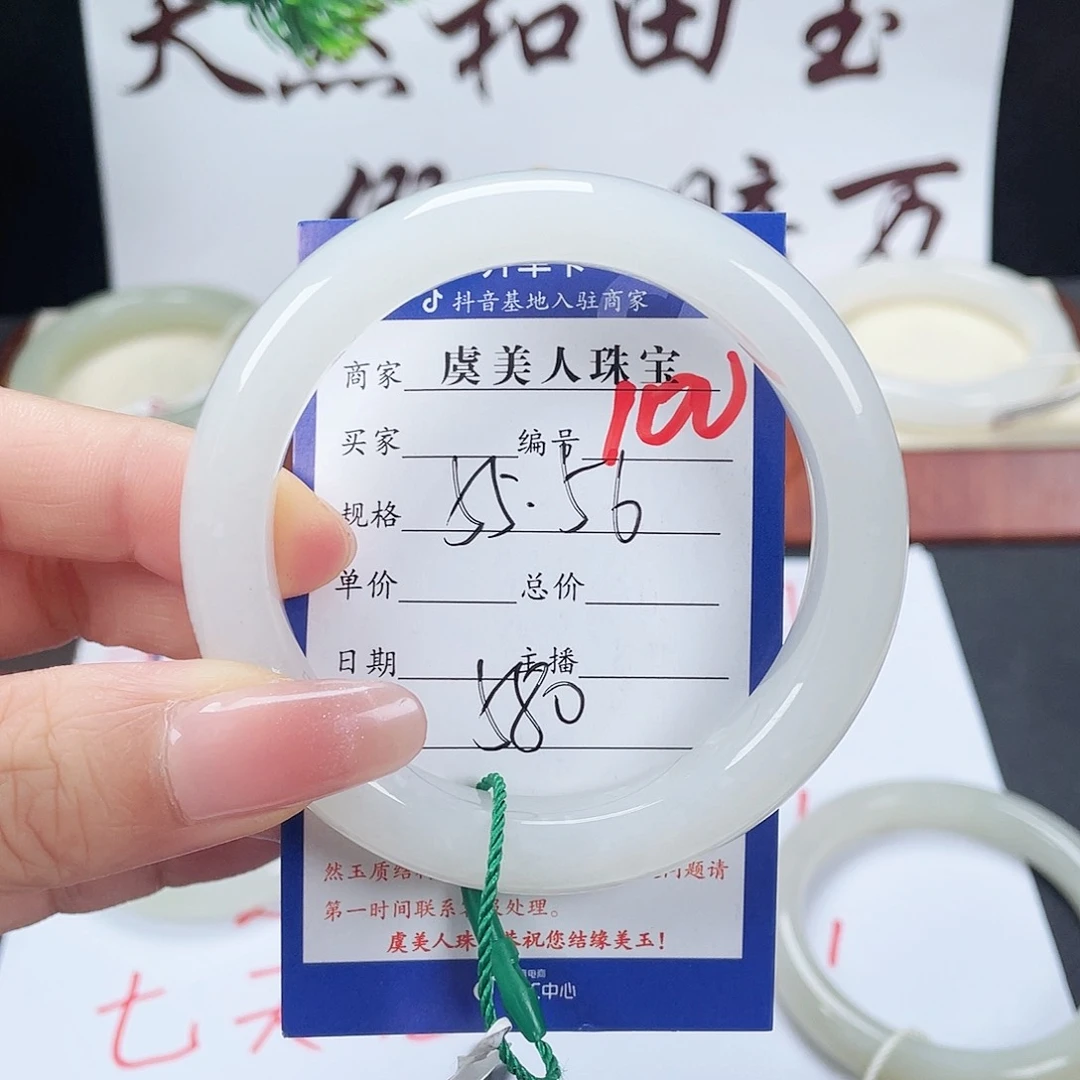 天然和田玉
假 赔万
抖音基地入驻商家
商家 虞美人珠宝
100
买家 编号
规格 55.56
单价 总价
日期 主播
580
然玉质结 问题请
第一时间联系 处理。
虞美人珠 恭祝您结缘美玉！
中心
七天